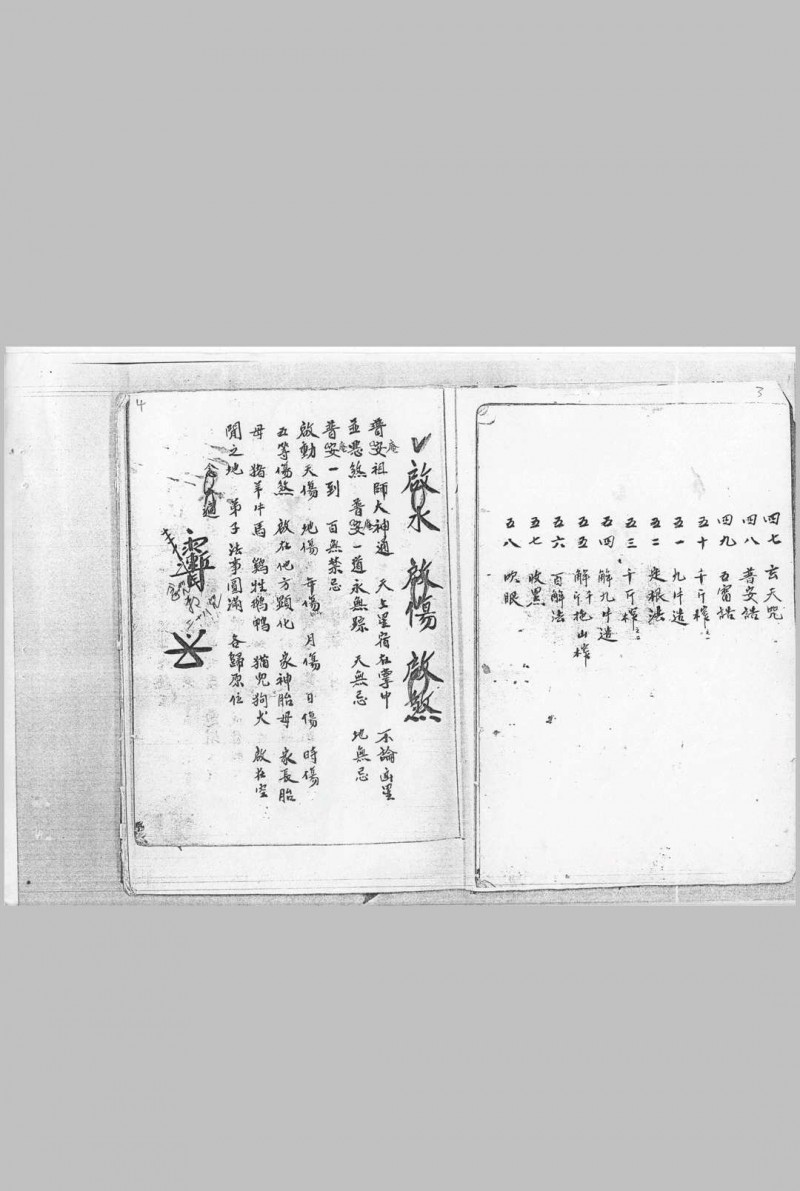 3
四七 玄天咒
四八 普安話
四九 五雷話
五十 千斤榨
五一 九片造
五二 定根法
五三 千斤榨
五四 解九片造
五五 解千斤拖山榨
五六 百解法
五七 收黑
五八 吹眼
4
啟水 啟傷 啟煞
普安庵祖師大神通 天上星宿在掌中 不論凶星
並惡煞 普安庵一道永無踪 天無忌 地無忌
普安庵一到 百無禁忌
啟動天傷 地傷 年傷 月傷 日傷 時傷
五等傷煞 啟在他方顕化 家神胎母 家長胎
母 猪羊牛馬 鷄牲鵝鴨 猫児狗犬 啟在空
閒之地 弟子法事圓滿 各歸原位
念 通